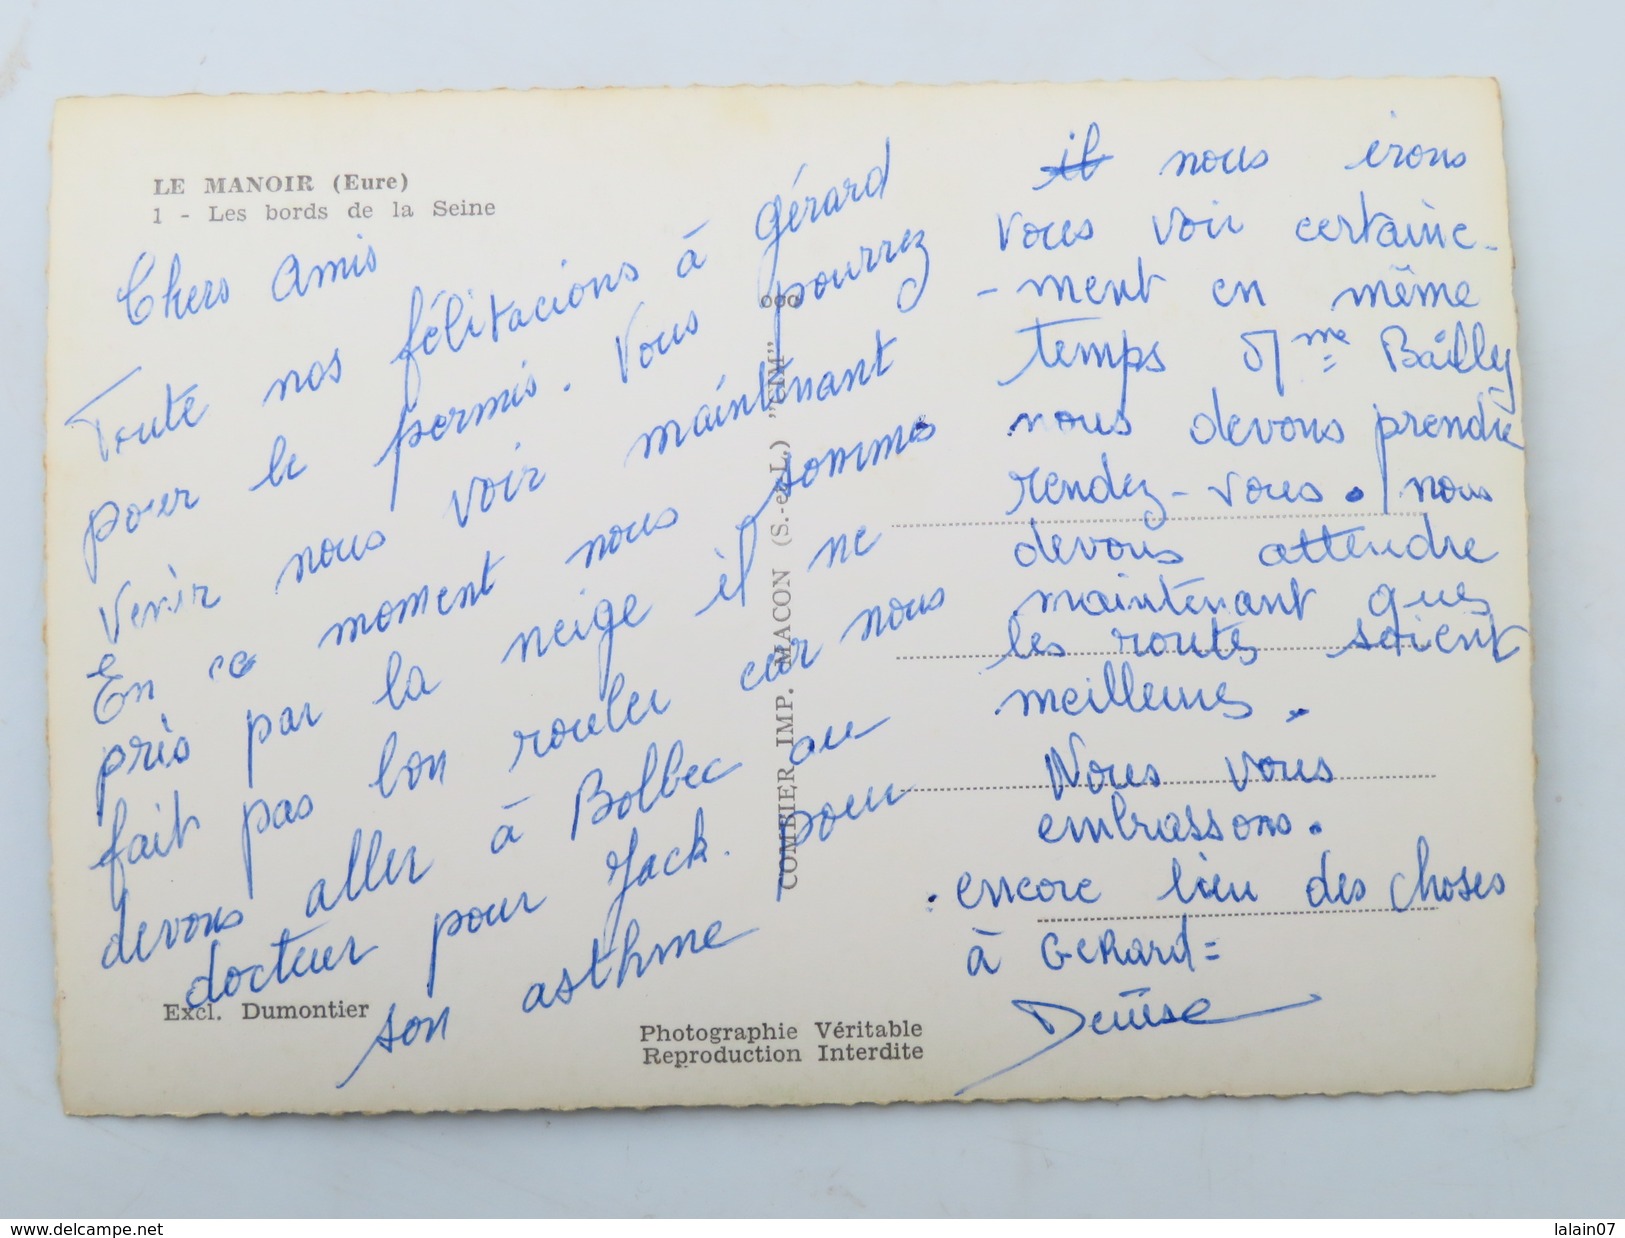 LE MANOIR (Eure)
1 - Les bords de la Seine
Chers Amis
Toute nos félitacions à gérard
pour le permis. Vous pourrez
Venir nous voir maintenant
En ce moment nous sommes
pris par la neige il ne
fait pas bon rouler car nous
devons aller à Bolbec au
docteur pour Jack. pour
son asthme
Excl. Dumontier
Photographie Véritable
Reproduction Interdite
COMBIER IMP. MACON (S.-et-L.) "CIM"
il nous irons
vous voir certaine-
-ment en même
temps Mme Bailly
nous devons prendre
rendez-vous. nous
devons attendre
maintenant ques
les routes soient
meilleures.
Nous vous
embrassons.
encore lieu des choses
à GERard=
Denise
www.delcampe.net
lalain07